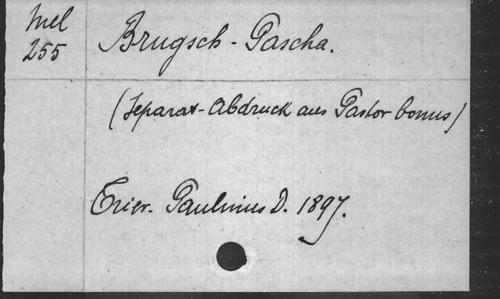 Mel
255
Brugsch-Pascha.
(Separat-Abdruck aus Pastor bonus)
Trier. Paulinus D. 1897.